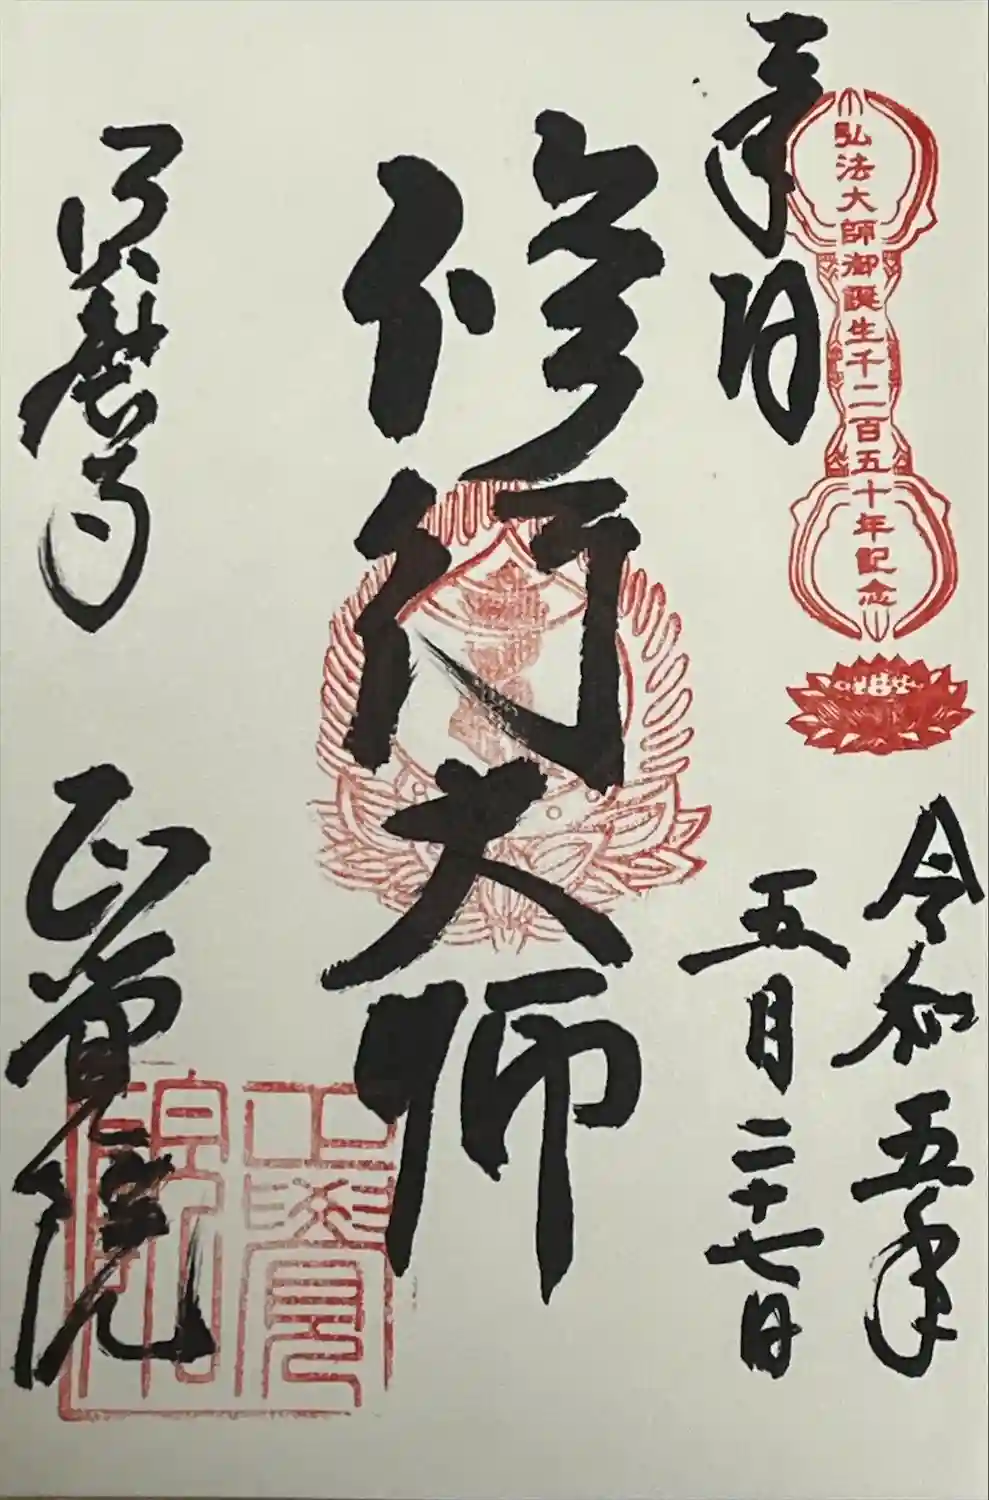 弘法大師御誕生千二百五十年記念
奉拝
令和五年
五月二十七日
修行大師
正覚院
正覺院印